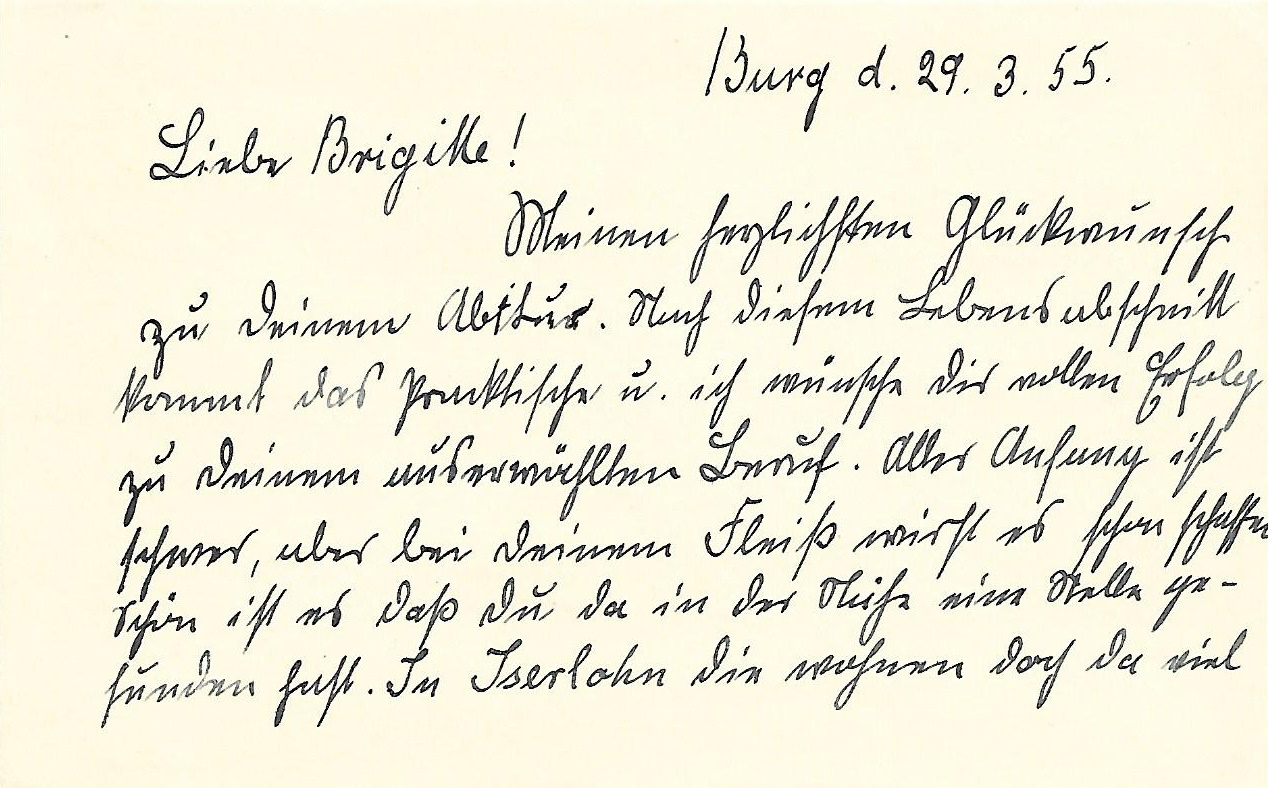 Burg d. 29. 3. 55.
Liebe Brigitte!
Meinen herzlichsten Glückwunsch
zu deinem Abitur. Nach diesem Lebensabschnitt
kommt das Praktische u. ich wünsche dir vollen Erfolg
zu deinem auserwählten Beruf. Aller Anfang ist
schwer, aber bei deinem Fleiß wirst es schon schaffen
Schön ist es daß du da in der Nähe eine Stelle ge-
funden hast. In Iserlohn die wohnen doch da viel